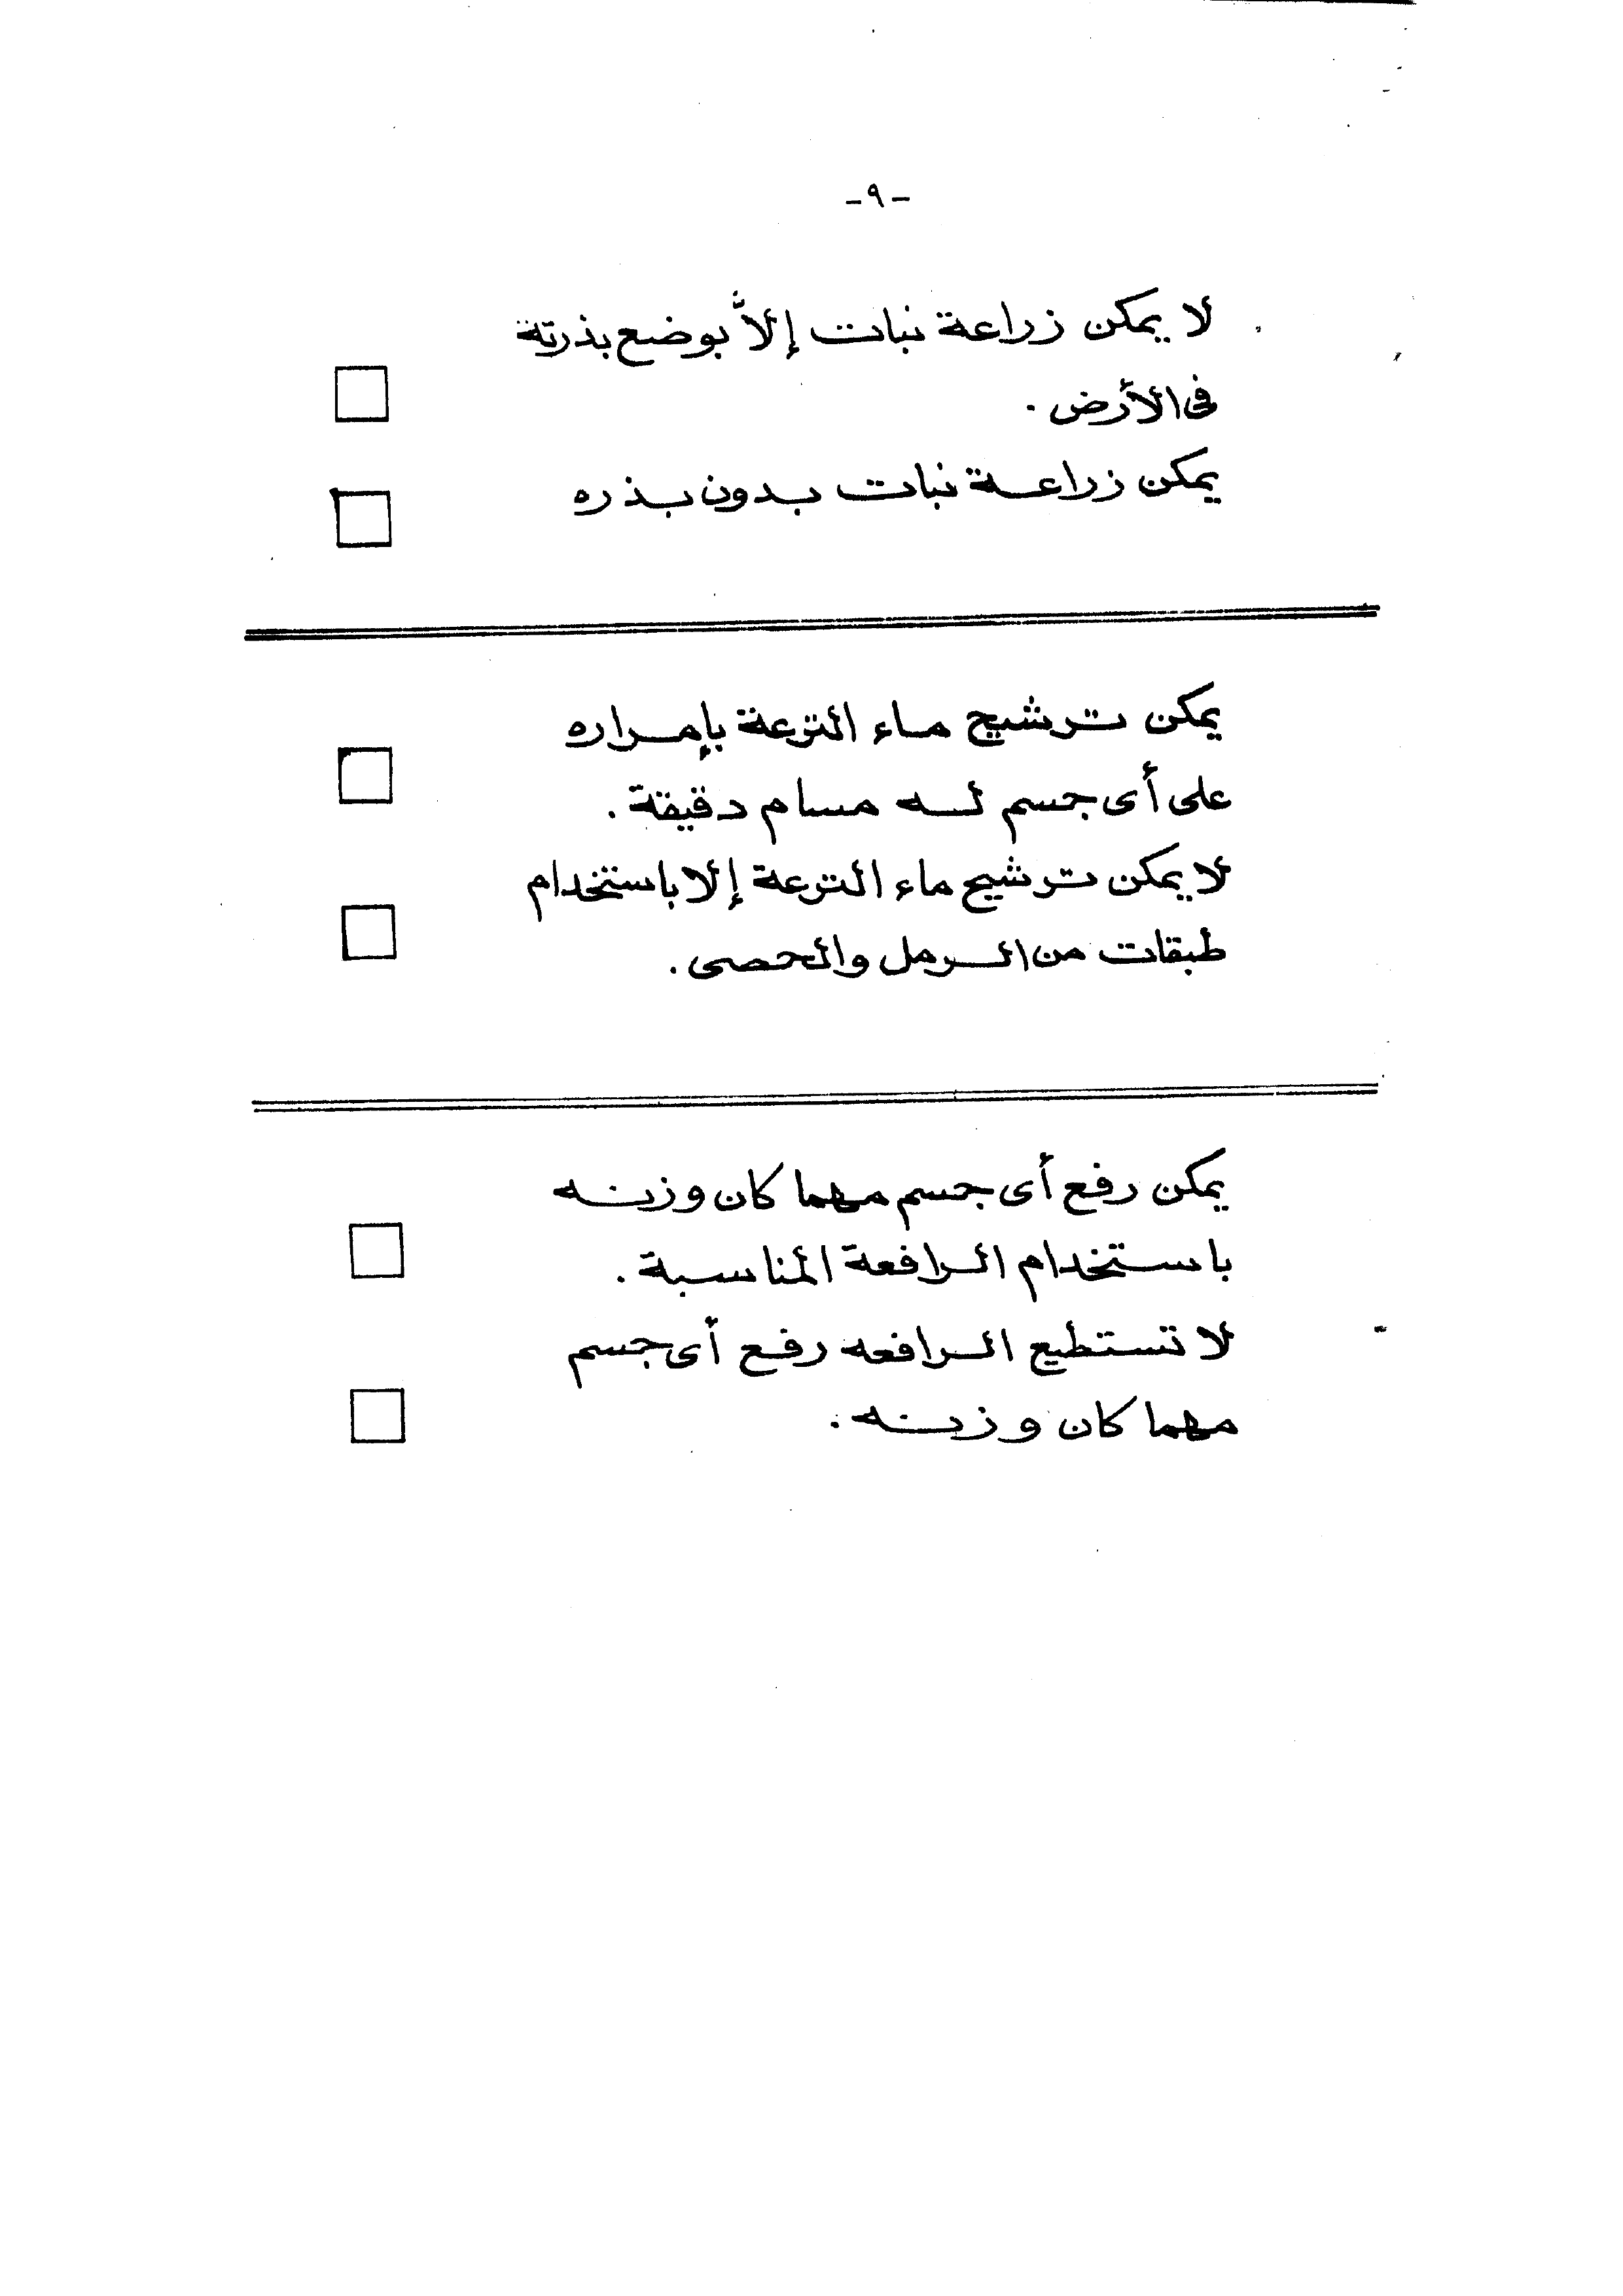 -٩-
لا يمكن زراعة نبات إلاَّ بوضع بذرتة
فى الأرض .
يمكن زراعة نبات بدون بذره
يمكن ترشيح ماء الترعة بإمراره
على أى جسم له مسام دقيقة .
لا يمكن ترشيح ماء الترعة إلا باستخدام
طبقات من الرمل والحصى .
يمكن رفع أى جسم مهما كان وزنه
باستخدام الرافعة المناسبة .
لا تستطيع الرافعه رفع أى جسم
مهما كان وزنه .